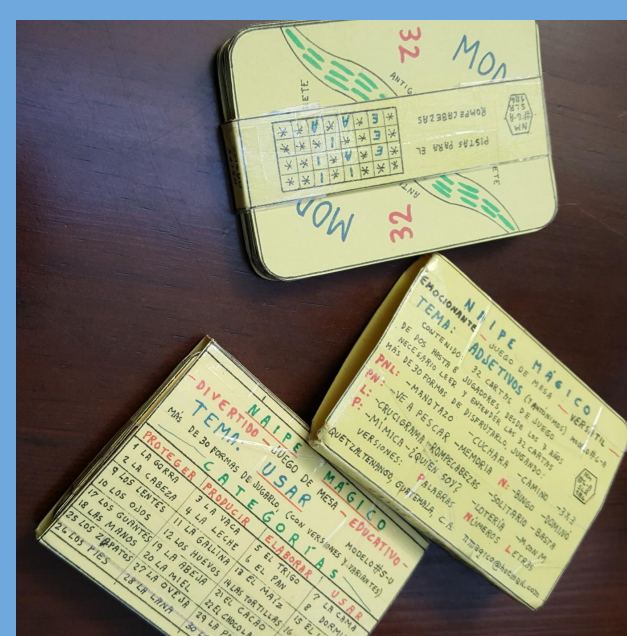 MOD
32
ANTIG
ETE
PISTAS PARA EL
ROMPECABEZAS
NM
MOD
32
ETE
NAIPE MÁGICO
EMOCIONANTE - JUEGO DE MESA - VERSÁTIL -
TEMA: ADJETIVOS (
CONTENIDO: 32 CARTAS DE JUEGO
DE DOS HASTA 8 JUGADORES, DESDE LOS AÑOS
NECESARIO LEER Y ENTENDER LAS 32 CARTAS
MÁS DE 30 FORMAS DE DISFRUTARLO JUGANDO:
PNL: -MANOTAZO -CUCHARA -CAMINO -3x3
PN: -VE A PESCAR -MEMORIA N: -BINGO -DOMINÓ
L: -CRUCIGRAMA -ROMPECABEZAS -SOLITARIO -BASTA
P: -MÍMICA -¿QUIEN SOY? -LOTERÍA
VERSIONES: PALABRAS NÚMEROS LETRAS
QUETZALTENANGO, GUATEMALA, C.A.
NAIPE MÁGICO
-DIVERTIDO- JUEGO DE MESA -EDUCATIVO-
TEMA: USAR MODELO#5-U
MÁS DE 30 FORMAS DE JUGARLO, (CON VERSIONES Y VARIANTES)
CATEGORÍAS
PROTEGER PRODUCIR ELABORAR USAR
1 LA GORRA 3 LA VACA 5 EL TRIGO 7 LA CAMA
2 LA CABEZA 4 LA LECHE 6 EL PAN 8 DORM
9 LOS LENTES 11 LA GALLINA 13 EL MAÍZ 15 EL
10 LOS OJOS 12 LOS HUEVOS 14 LAS TORTILLAS 16
17 LOS GUANTES 19 LA ABEJA 21 EL CACAO
18 LAS MANOS 20 LA MIEL 22 EL CHOCOLA
25 LOS ZAPATOS 27 LA OVEJA 29 LA
26 LOS PIES 28 LA LANA 30